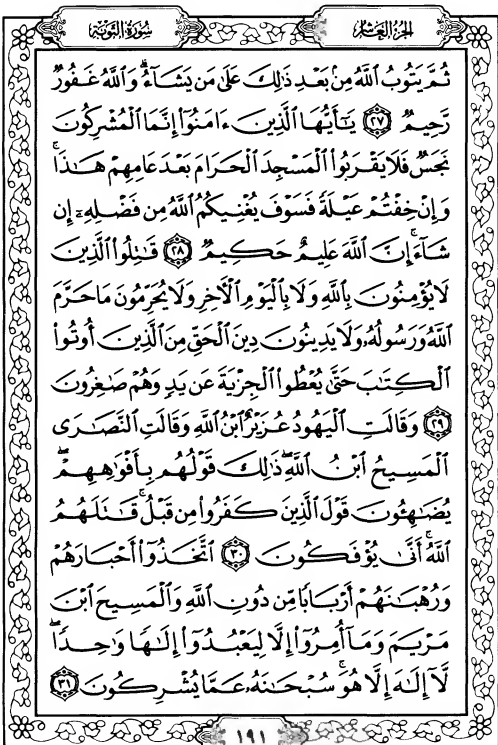 الجزء العاشر
سورة التوبة
ثُمَّ يَتُوبُ ٱللَّهُ مِنۢ بَعْدِ ذَٰلِكَ عَلَىٰ مَن يَشَآءُ ۗ وَٱللَّهُ غَفُورٌ
رَّحِيمٌ ٢٧ يَـٰٓأَيُّهَا ٱلَّذِينَ ءَامَنُوٓا۟ إِنَّمَا ٱلْمُشْرِكُونَ
نَجَسٌ فَلَا يَقْرَبُوا۟ ٱلْمَسْجِدَ ٱلْحَرَامَ بَعْدَ عَامِهِمْ هَـٰذَا ۚ
وَإِنْ خِفْتُمْ عَيْلَةً فَسَوْفَ يُغْنِيكُمُ ٱللَّهُ مِن فَضْلِهِۦٓ إِن
شَآءَ ۚ إِنَّ ٱللَّهَ عَلِيمٌ حَكِيمٌ ٢٨ قَـٰتِلُوا۟ ٱلَّذِينَ
لَا يُؤْمِنُونَ بِٱللَّهِ وَلَا بِٱلْيَوْمِ ٱلْـَٔاخِرِ وَلَا يُحَرِّمُونَ مَا حَرَّمَ
ٱللَّهُ وَرَسُولُهُۥ وَلَا يَدِينُونَ دِينَ ٱلْحَقِّ مِنَ ٱلَّذِينَ أُوتُوا۟
ٱلْكِتَـٰبَ حَتَّىٰ يُعْطُوا۟ ٱلْجِزْيَةَ عَن يَدٍ وَهُمْ صَـٰغِرُونَ
٢٩ وَقَالَتِ ٱلْيَهُودُ عُزَيْرٌ ٱبْنُ ٱللَّهِ وَقَالَتِ ٱلنَّصَـٰرَى
ٱلْمَسِيحُ ٱبْنُ ٱللَّهِ ۖ ذَٰلِكَ قَوْلُهُم بِأَفْوَٰهِهِمْ ۖ
يُضَـٰهِـُٔونَ قَوْلَ ٱلَّذِينَ كَفَرُوا۟ مِن قَبْلُ ۚ قَـٰتَلَهُمُ
ٱللَّهُ ۚ أَنَّىٰ يُؤْفَكُونَ ٣٠ ٱتَّخَذُوٓا۟ أَحْبَارَهُمْ
وَرُهْبَـٰنَهُمْ أَرْبَابًا مِّن دُونِ ٱللَّهِ وَٱلْمَسِيحَ ٱبْنَ
مَرْيَمَ وَمَآ أُمِرُوٓا۟ إِلَّا لِيَعْبُدُوٓا۟ إِلَـٰهًا وَٰحِدًا ۖ
لَّآ إِلَـٰهَ إِلَّا هُوَ ۚ سُبْحَـٰنَهُۥ عَمَّا يُشْرِكُونَ ٣١
١٩١